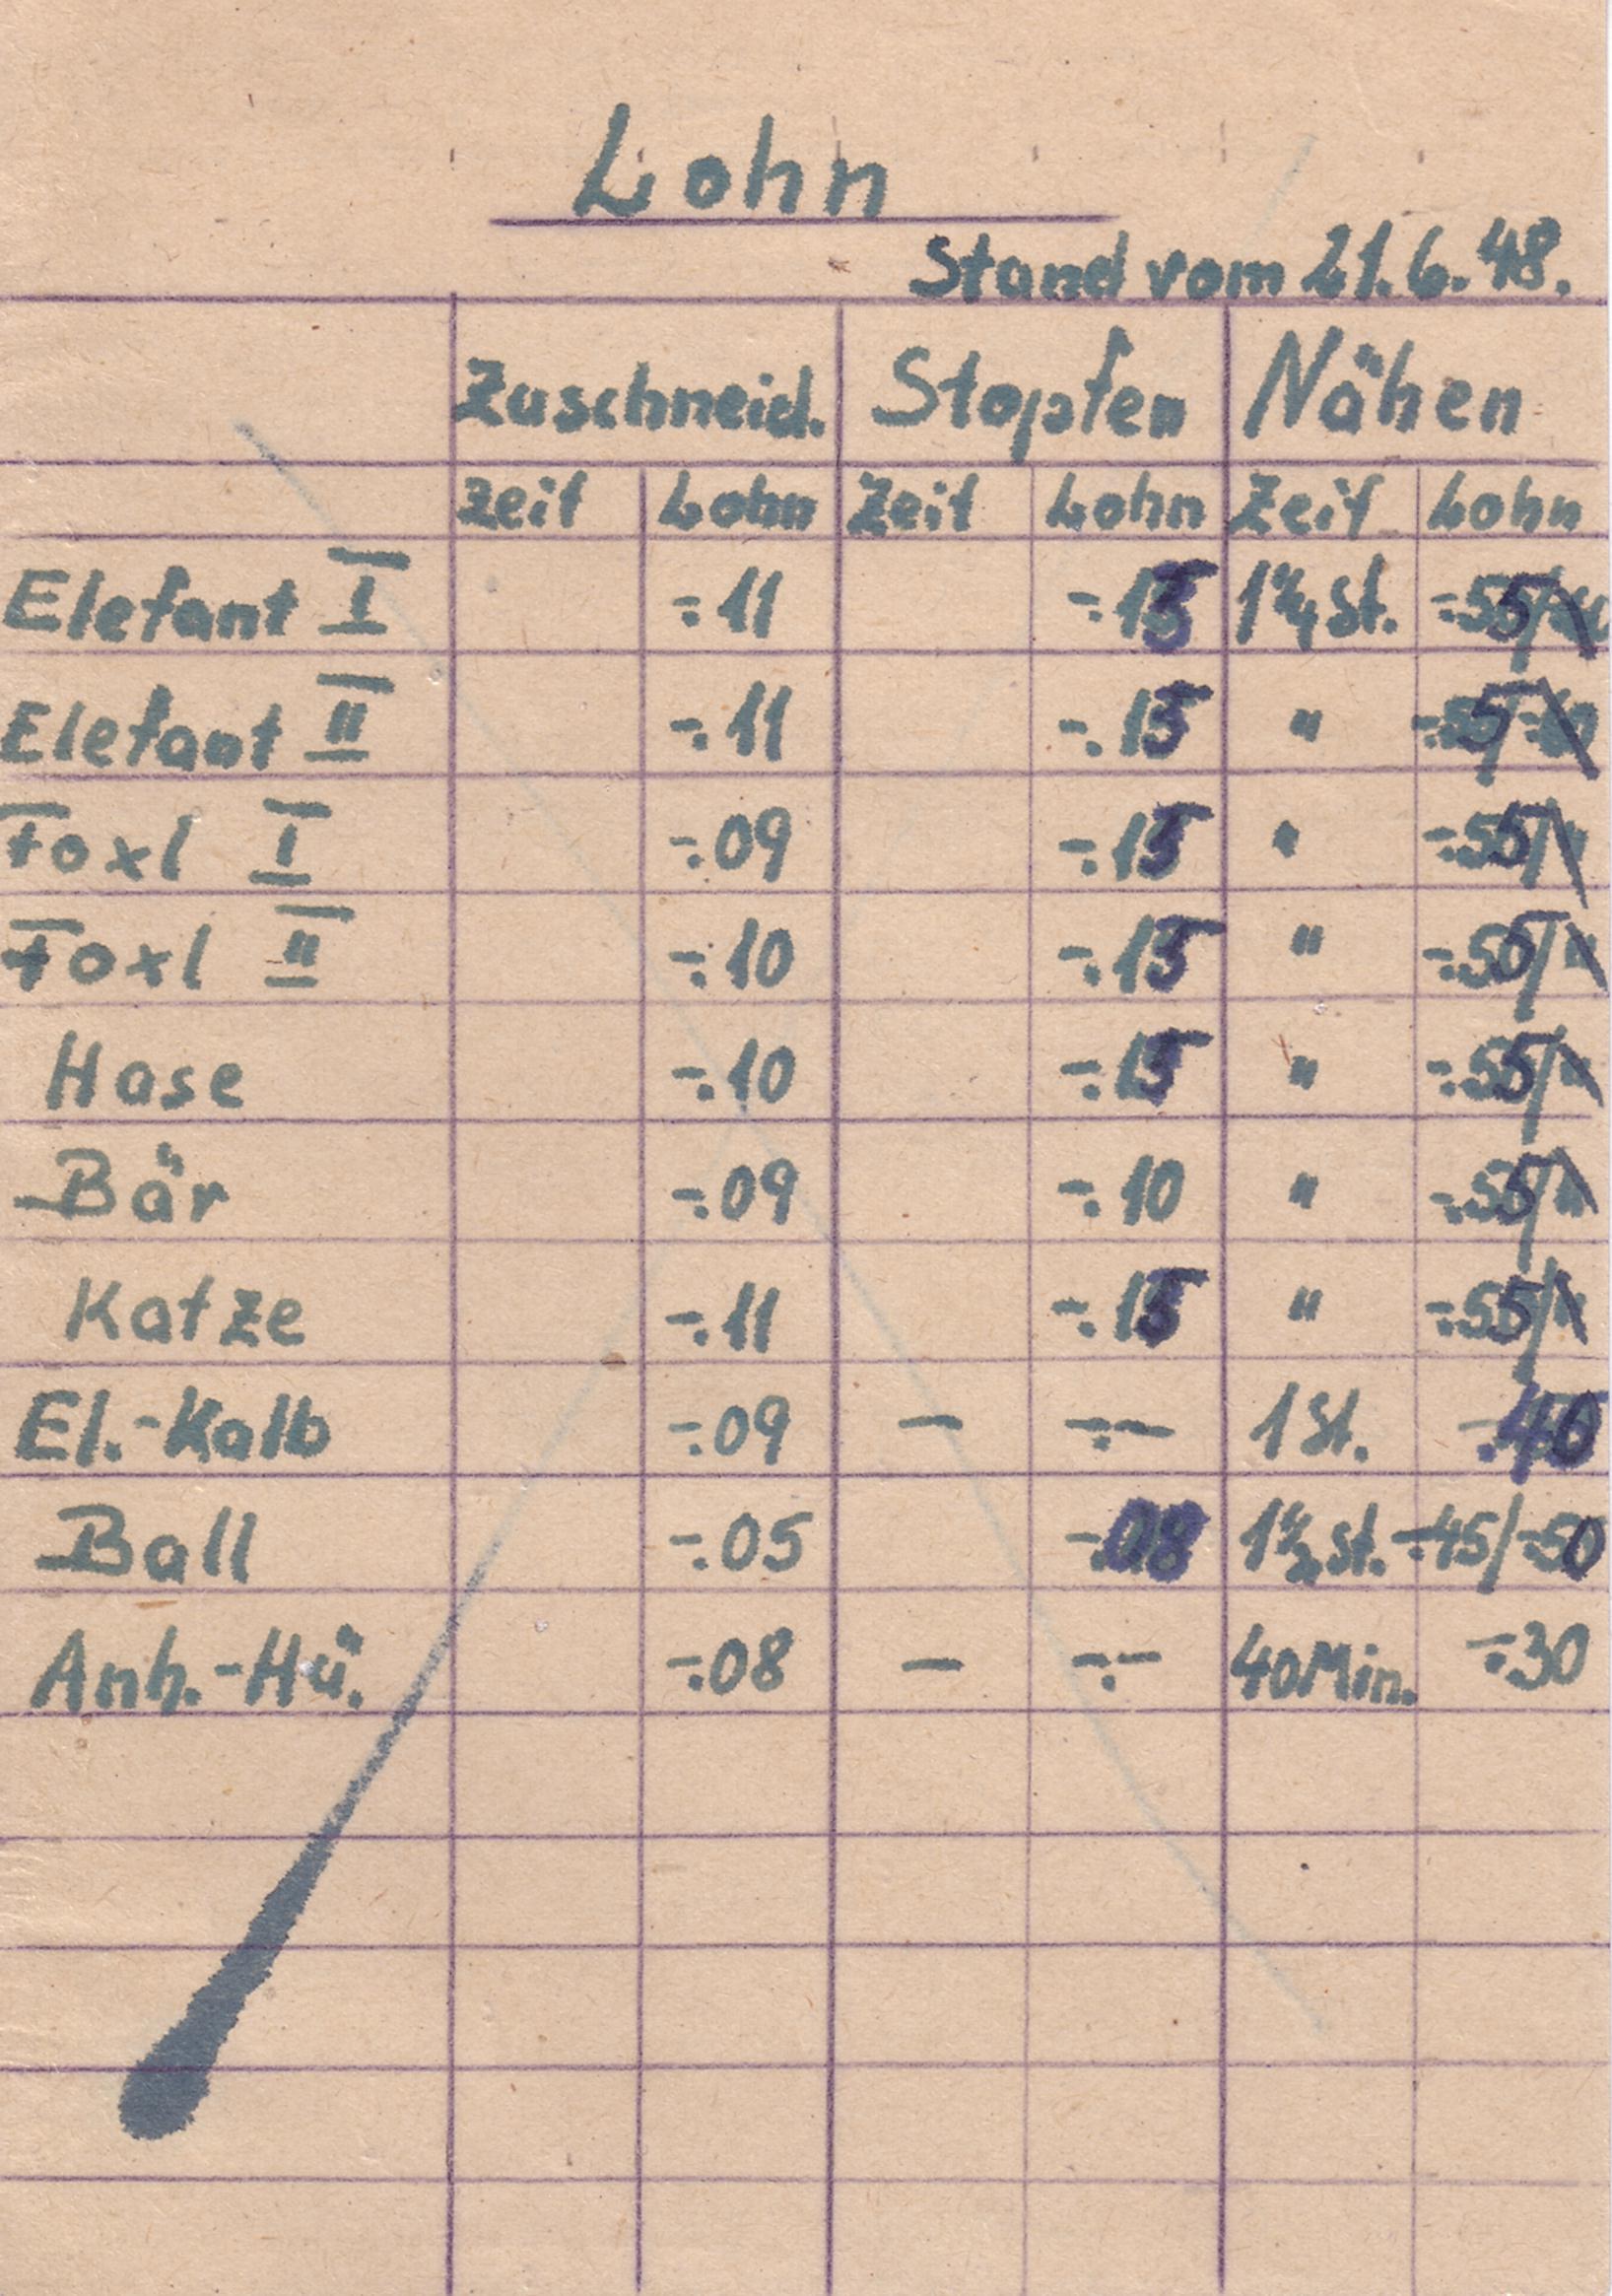 Lohn
Stand vom 21.6.48.
Zuschneid. Stopfen Nähen
Zeit Lohn Zeit Lohn Zeit Lohn
Elefant I -.11 -.15 1¼ St. -.55/
Elefant II -.11 -.15 " -.55
Foxl I -.09 -.15 " -.55/
Foxl II -.10 -.15 " -.55/
Hase -.10 -.15 " -.55/
Bär -.09 -.10 " -.55/
Katze -.11 -.15 " -.55/
El.-Kalb -.09 — -.— 1 St. -.40
Ball -.05 -.08 1½ St. -.45/-.50
Anh.-Hü. -.08 — -.- 40 Min. -.30